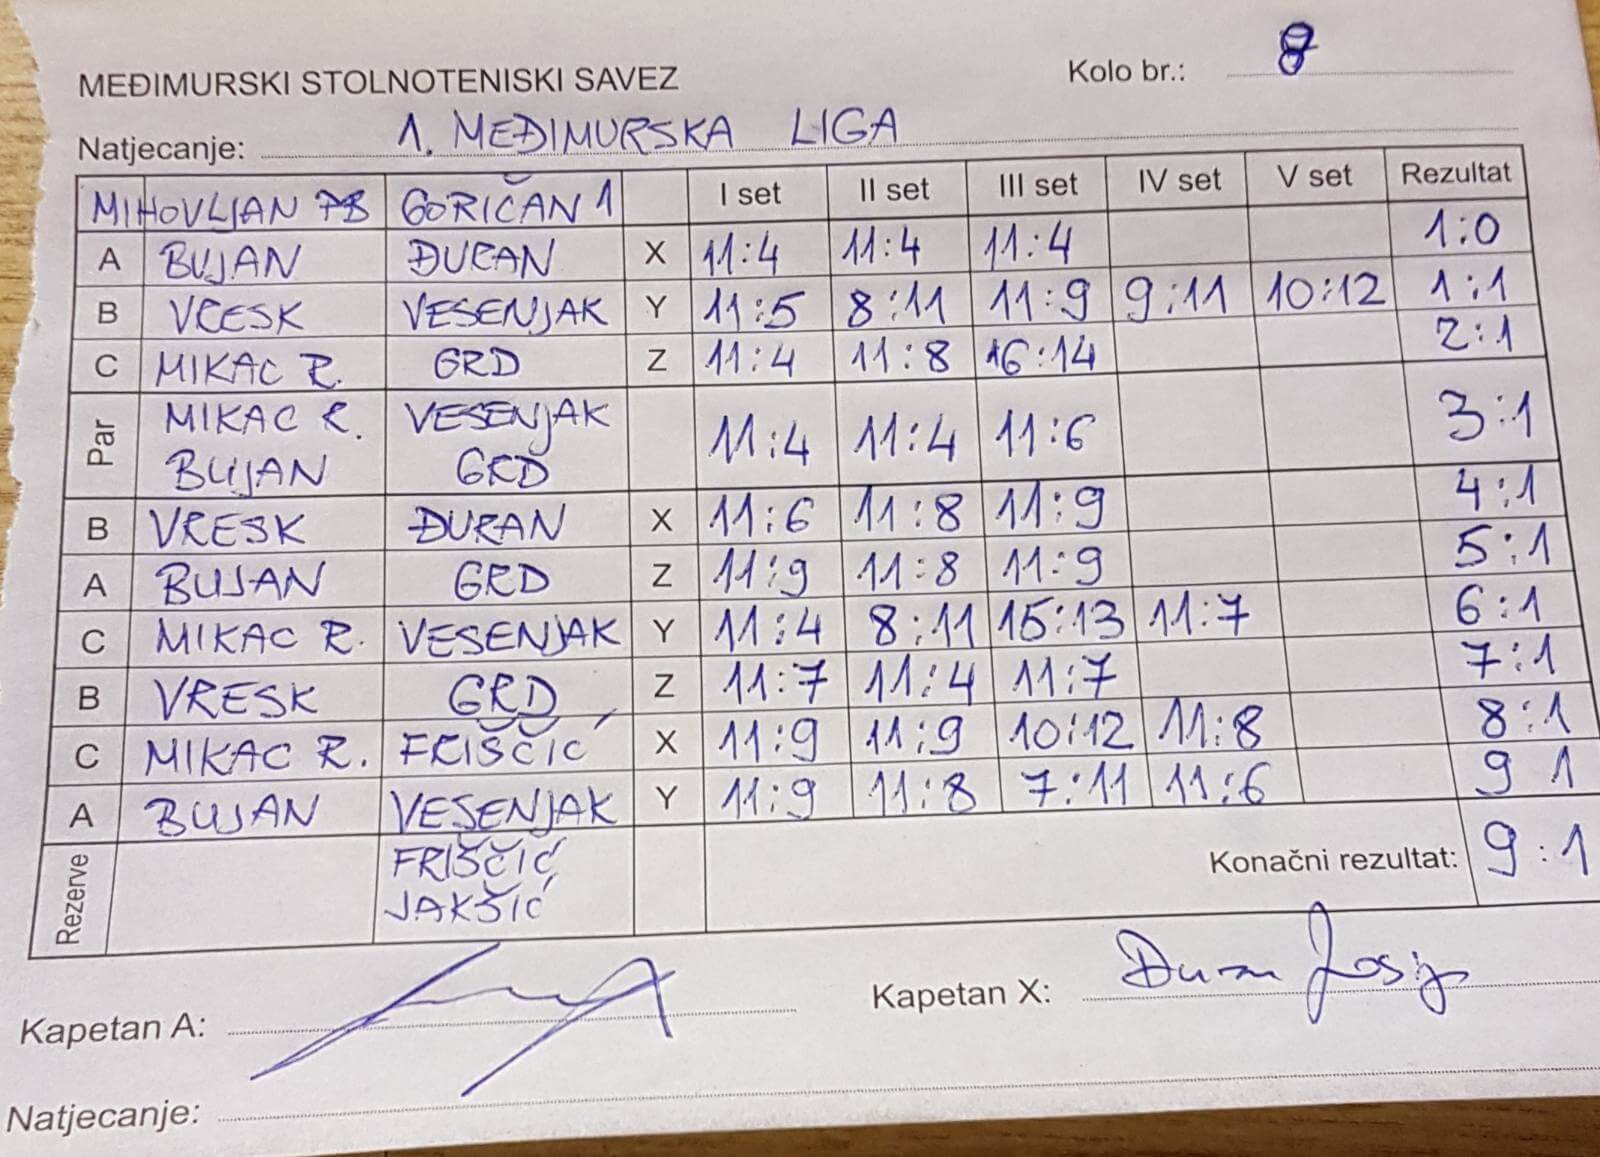 MEĐIMURSKI STOLNOTENISKI SAVEZ Kolo br.: 8
Natjecanje: 1. MEĐIMURSKA LIGA
MIHOVLJAN GORIČAN 1 I set II set III set IV set V set Rezultat
A BUJAN ĐURAN X 11:4 11:4 11:4 1:0
B VRESK VESENJAK Y 11:5 8:11 11:9 9:11 10:12 1:1
C MIKAC R. GRD Z 11:4 11:8 16:14 2:1
Par MIKAC R. BUJAN VESENJAK GRD 11:4 11:4 11:6 3:1
B VRESK ĐURAN X 11:6 11:8 11:9 4:1
A BUJAN GRD Z 11:9 11:8 11:9 5:1
C MIKAC R. VESENJAK Y 11:4 8:11 15:13 11:7 6:1
B VRESK GRD Z 11:7 11:4 11:7 7:1
C MIKAC R. FRIŠČIĆ X 11:9 11:9 10:12 11:8 8:1
A BUJAN VESENJAK Y 11:9 11:8 7:11 11:6 9 1
Rezerve FRIŠČIĆ JAKŠIĆ Konačni rezultat: 9:1
Kapetan A: Kapetan X: Đuran Josip
Natjecanje: